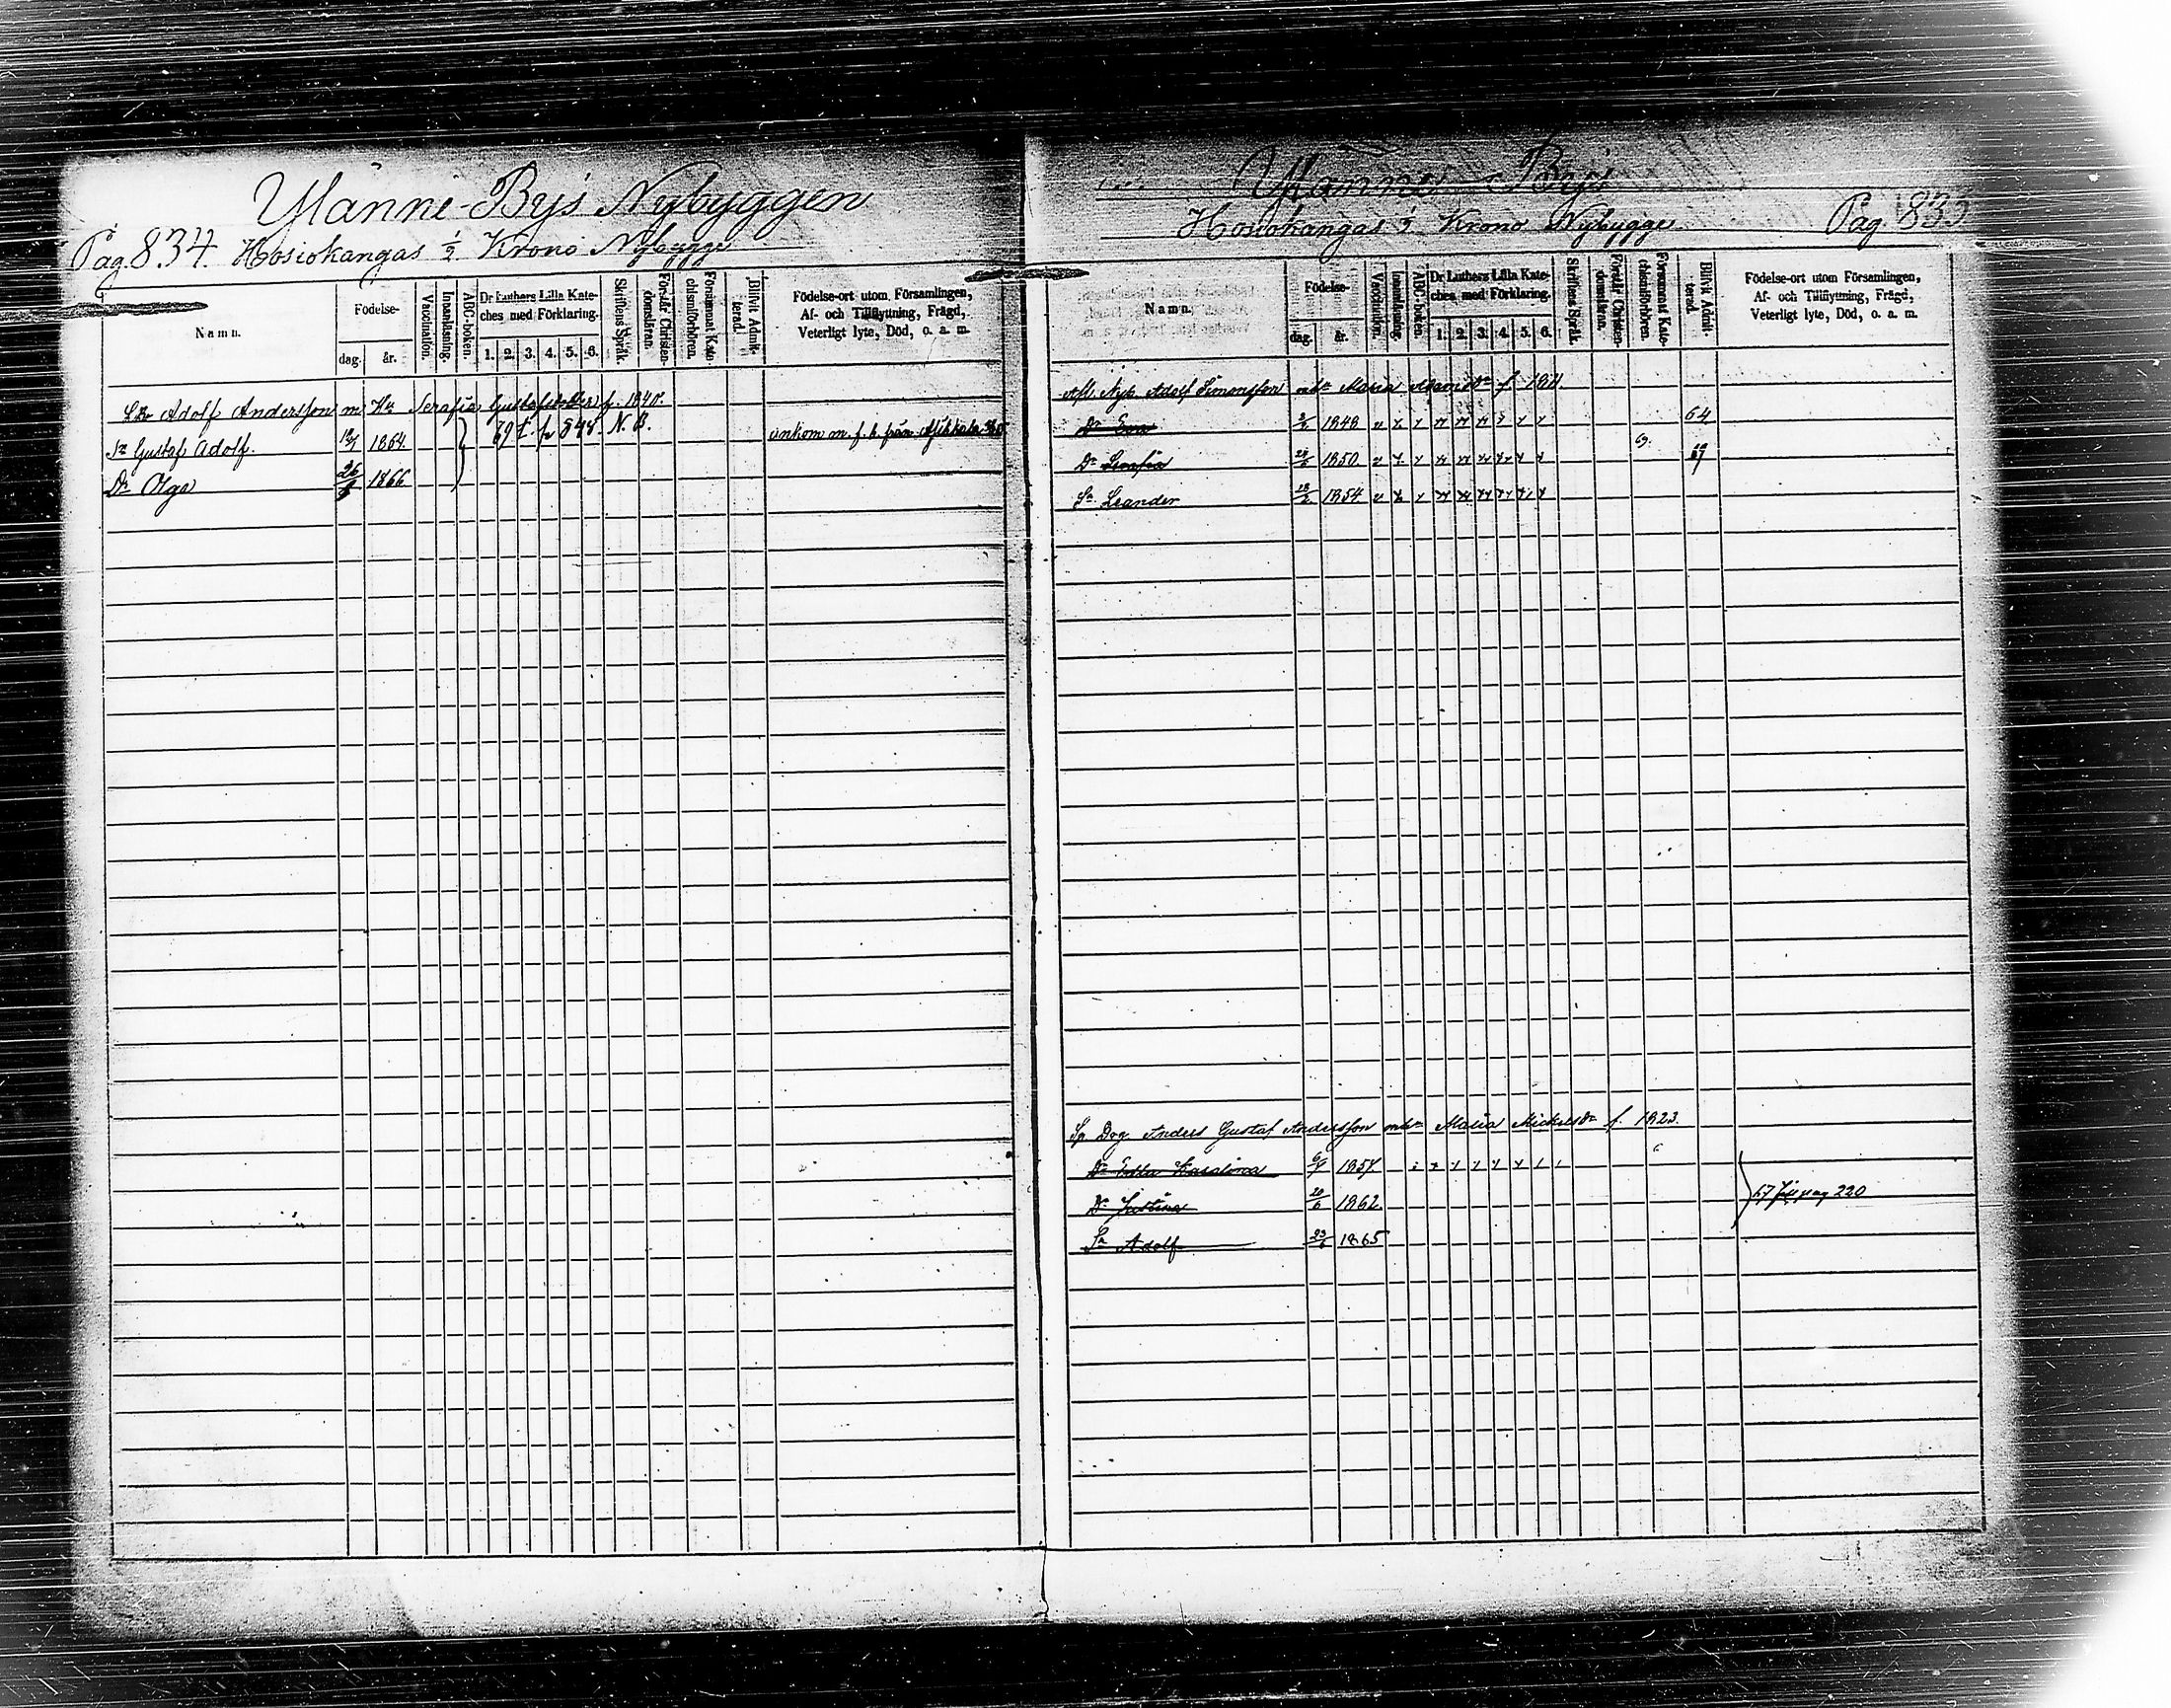 Ylänne-Bys Nybyggen
Pag. 834. Hosiokangas 1/2 Krono Nybygge
Namn.
Födelse-
dag.
år.
Vaccination.
Innanläsning.
ABC-boken.
Dr Luthers Lilla Kate-
ches med Förklaring.
1. 2. 3. 4. 5. 6.
Skriftens Språk.
Förstår Christen-
domsläran.
Försummat Kate-
chismiförhören.
Blifvit Admit-
terad.
Födelse-ort utom Församlingen,
Af- och Tillflyttning, Frägd,
Veterligt lyte, Död, o. a. m.
Adolf Andersson m. Hu Serafia f. 1840.
Sn Gustaf Adolf. 1864 69 N. B. inkom m. f. b. från
Dr Olga 26 1866
Bys
Hosiokangas 1/2 Krono Nybygge Pag. 835
Namn.
Födelse-
dag.
år.
Vaccination.
Innanläsning.
ABC-boken.
Dr Luthers Lilla Kate-
ches med Förklaring.
1. 2. 3. 4. 5. 6.
Skriftens Språk.
Förstår Christen-
domsläran.
Försummat Kate-
chismiförhören.
Blifvit Admit-
terad.
Födelse-ort utom Församlingen,
Af- och Tillflyttning, Frägd,
Veterligt lyte, Död, o. a. m.
Afl. Nyb. Adolf Simonsson enka Maria f. 1811
Dr Eva 1848 64
Dr 1850
Sn Leander 18/2 1854
Dog. Anders Gustaf Andersson enka Maria Mickelsdr f. 1823.
Dr 1857
Dr Justina 20/6 1862 67 pag 220
Sn Adolf 1865